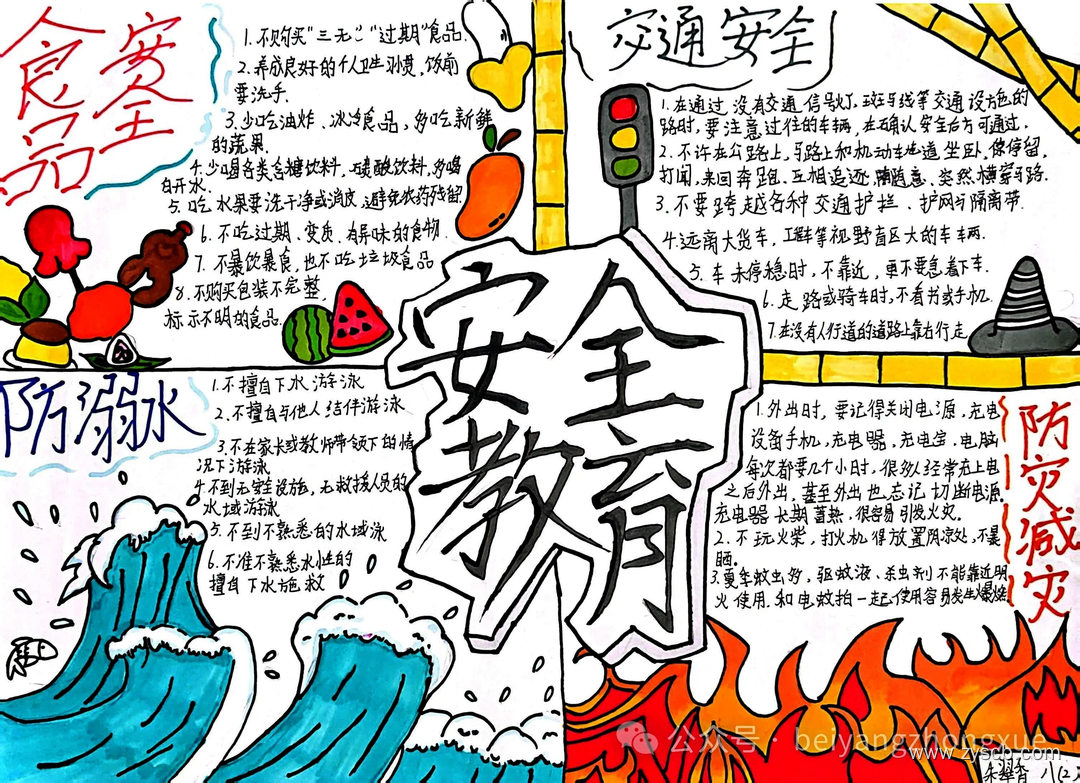 食品
安全
1.不购买"三无""过期"食品.
2.养成良好的个人卫生习惯,饭前
要洗手.
3.少吃油炸、冰冷食品,多吃新鲜
的蔬果.
4.少喝各类含糖饮料,碳酸饮料,多喝
白开水.
5.吃水果要洗干净或消皮,避免农药残留.
6.不吃过期、变质、有异味的食物.
7.不暴饮暴食,也不吃垃圾食品
8.不购买包装不完整
标示不明的食品.
交通安全
1.在通过没有交通信号灯,斑马线等交通设施的
路时,要注意过往的车辆,在确认安全后方可通过.
2.不许在公路上,马路上和机动车道坐卧,停留,
打闹,来回奔跑、互相追逐、随意、突然横穿马路.
3.不要跨越各种交通护拦、护网与隔离带.
4.远离大货车,工程车等视野盲区大的车辆.
5.车未停稳时,不靠近,更不要急着下车.
6.走路或骑车时,不看书或手机.
7.在没有人行道的道路上靠右行走
安全
教育
防溺水
1.不擅自下水游泳
2.不擅自与他人结伴游泳
3.不在家长或教师带领下的情
况下游泳
4.不到无安全设施,无救援人员的
水域游泳
5.不到不熟悉的水域泳
6.不准不熟悉水性的
擅自下水施救
防灾减灾
1.外出时,要记得关闭电源,充电
设备手机,充电器,充电宝,电脑
每次都要几个小时,很多人经常充上电
之后外出,甚至外出也忘记切断电源.
充电器长期蓄热,很容易引发火灾。
2.不玩火柴,打火机得放置阴凉处,不暴
晒。
3.夏年蚊虫多,驱蚊液、杀虫剂不能靠近明
火使用.和电蚊拍一起使用容易发生爆燃
公众号·beiyangzhongxue
www.zyscb.com